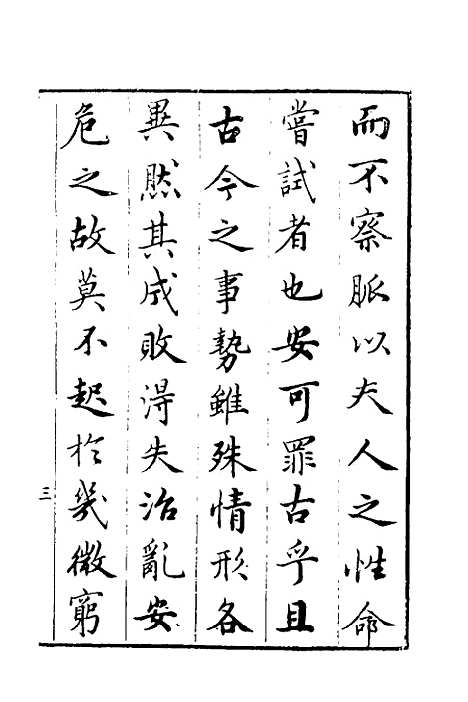 而不察脈以夫人之性命
嘗試者也安可罪古乎且
古今之事勢雖殊情形各
異然其成敗淂失治亂安
危之故莫不起於幾微窮
三